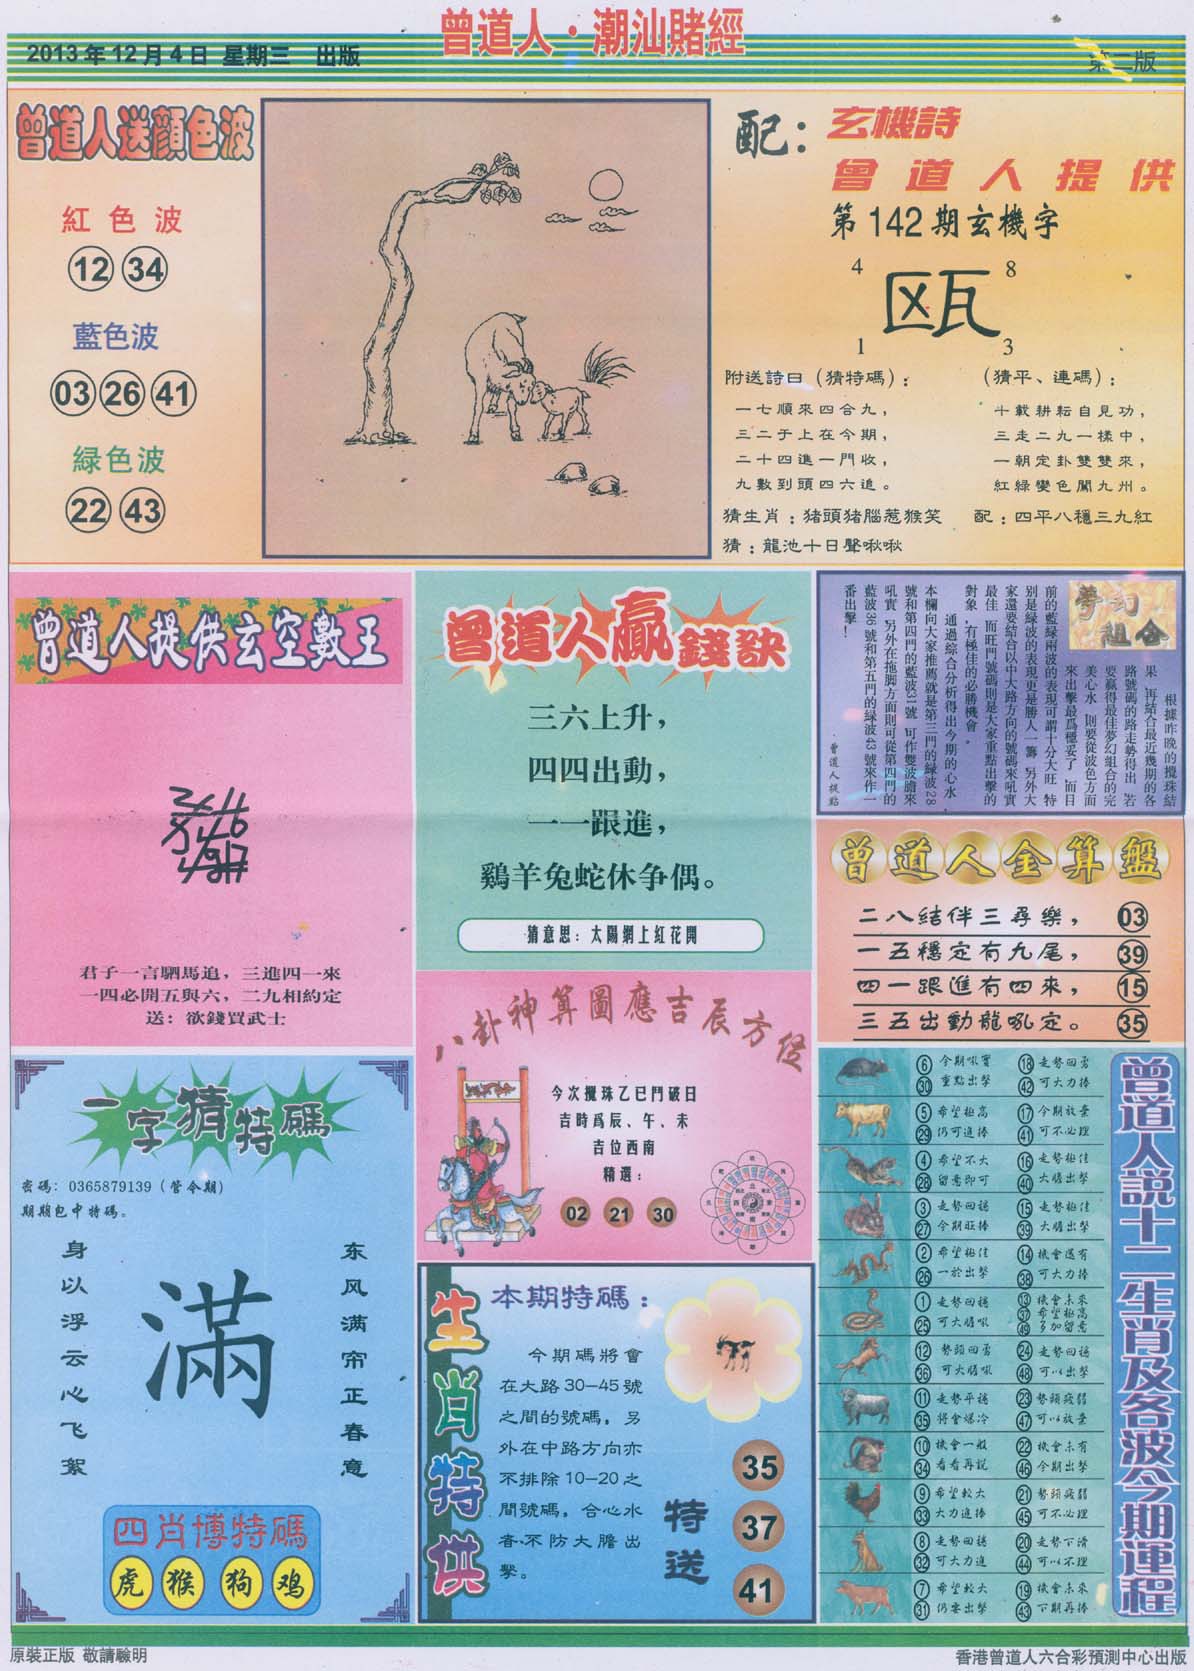 曾道人·潮汕賭經
2013年12月4日 星期三 出版
第二版
曾道人送顏色波
紅色波
12 34
藍色波
03 26 41
緑色波
22 43
配：
玄機詩
曾道人提供
第142期玄機字
4 8
瓯
1 3
附送詩曰（猜特碼）：
一七順來四合九，
三二于上在今期，
二十四進一門收，
九數到頭四六追。
（猜平、連碼）：
十載耕耘自見功，
三走二九一樣中，
一朝定卦雙雙來，
紅緑變色闖九州。
猜生肖：猪頭猪腦惹猴笑
配：四平八穩三九紅
猜：龍池十日聲啾啾
曾道人提供玄空數王
君子一言駟馬追，三進四一來
一四必開五與六，二九相約定
送：欲錢買武士
曾道人贏錢訣
三六上升，
四四出動，
一一跟進，
鷄羊兔蛇休争偶。
猜意思：太陽網上紅花開
夢幻組合
根據昨晚的攪珠結
果，再結合最近幾期的各
路號碼的路走勢得出，若
要贏得最佳夢幻組合的完
美心水，則要從波色方面
來出擊最爲穩妥了，而目
前的藍緑兩波的表現可謂十分大旺，特
别是緑波的表現更是勝人一籌，另外大
家還要結合以中大路方向的號碼來吼實
最佳，而旺門號碼則是大家重點出擊的
對象，有極佳的必勝機會。
通過綜合分析得出今期的心水，
本欄向大家推薦就是第三門的緑波28
號和第四門的藍波31號，可作雙波膽來
吼實，另外在拖脚方面則可從第四門的
藍波36號和第五門的緑波43號來作一
番出擊！
·曾道人提點
曾道人金算盤
二八結伴三尋樂， 03
一五穩定有九尾， 39
四一跟進有四來， 15
三五出動龍吼定。 35
八卦神算圖應吉辰方位
今次攪珠乙巳門破日
吉時爲辰、午、未
吉位西南
精選：
02 21 30
一字猜特碼
密碼：0365879139（管今期）
期期包中特碼。
身以浮云心飞絮
滿
东风满帘正春意
四肖博特碼
虎 猴 狗 鸡
生肖特供
本期特碼：
今期碼將會
在大路30-45號
之間的號碼，另
外在中路方向亦
不排除10-20之
間號碼，合心水
者不防大膽出
擊。
特送
35
37
41
曾道人説十二生肖及各波今期運程
6 今期吼實 18 走勢回勇
30 重點出擊 42 可大力捧
5 希望極高 17 今期放棄
29 仍可進捧 41 可不必理
4 希望不大 16 走勢極佳
28 留意即可 40 大膽出擊
3 走勢回穩 15 走勢極佳
27 今期旺捧 39 大膽出擊
2 希望極佳 14 機會還有
26 一於出擊 38 可大力捧
1 走勢回穩 13 機會未來
25 可大膽吼 37 希望極高
49 多加留意
12 勢頭回勇 24 走勢回穩
36 可大膽吼 48 可以出擊
11 走勢平穩 23 勢頭疲弱
35 將會爆冷 47 可以放棄
10 機會一般 22 機會未有
34 看看再説 46 今期出擊
9 希望較大 21 勢頭疲弱
33 大力進捧 45 可不必理
8 走勢回穩 20 走勢下滑
32 可大力進 44 可以不理
7 希望較大 19 機會未來
31 仍要出擊 43 下期再捧
原裝正版 敬請驗明
香港曾道人六合彩預測中心出版